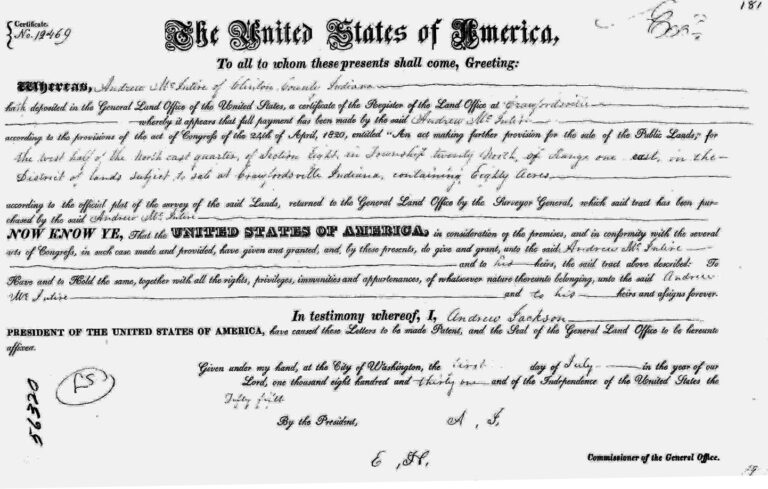 181
Certificate.
No. 12469
The United States of America,
To all to whom these presents shall come, Greeting:
WHEREAS, Andrew McIntire of Clinton County Indiana
hath deposited in the General Land Office of the United States, a certificate of the Register of the Land Office at Crawfordsville
whereby it appears that full payment has been made by the said Andrew McIntire
according to the provisions of the act of Congress of the 24th of April, 1820, entitled "An act making further provision for the sale of the Public Lands," for
the west half of the North east quarter, of Section Eight, in Township twenty North, of Range one east, in the
District of lands subject to sale at Crawfordsville Indiana, containing Eighty Acres
according to the official plot of the survey of the said Lands, returned to the General Land Office by the Surveyor General, which said tract has been pur-
chased by the said Andrew McIntire
NOW KNOW YE, That the UNITED STATES OF AMERICA, in consideration of the premises, and in conformity with the several
acts of Congress, in such case made and provided, have given and granted, and, by these presents, do give and grant, unto the said Andrew McIntire
and to his heirs, the said tract above described: To
Have and to Hold the same, together with all the rights, privileges, immunities and appurtenances, of whatsoever nature thereunto belonging, unto the said Andrew
McIntire and to his heirs and assigns forever.
In testimony whereof, I, Andrew Jackson
PRESIDENT OF THE UNITED STATES OF AMERICA, have caused these Letters to be made Patent, and the Seal of the General Land Office to be hereunto
affixed.
Given under my hand, at the City of Washington, the first day of July in the year of our
Lord, one thousand eight hundred and thirty one and of the Independence of the United States the
fifty fifth
LS
56320
By the President, A. J.
E. H.
Commissioner of the General Office.